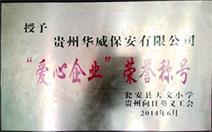 授予
贵州华威保安有限公司
“爱心企业”荣誉称号
瓮安县天文小学
贵州向日葵义工会
2014年6月